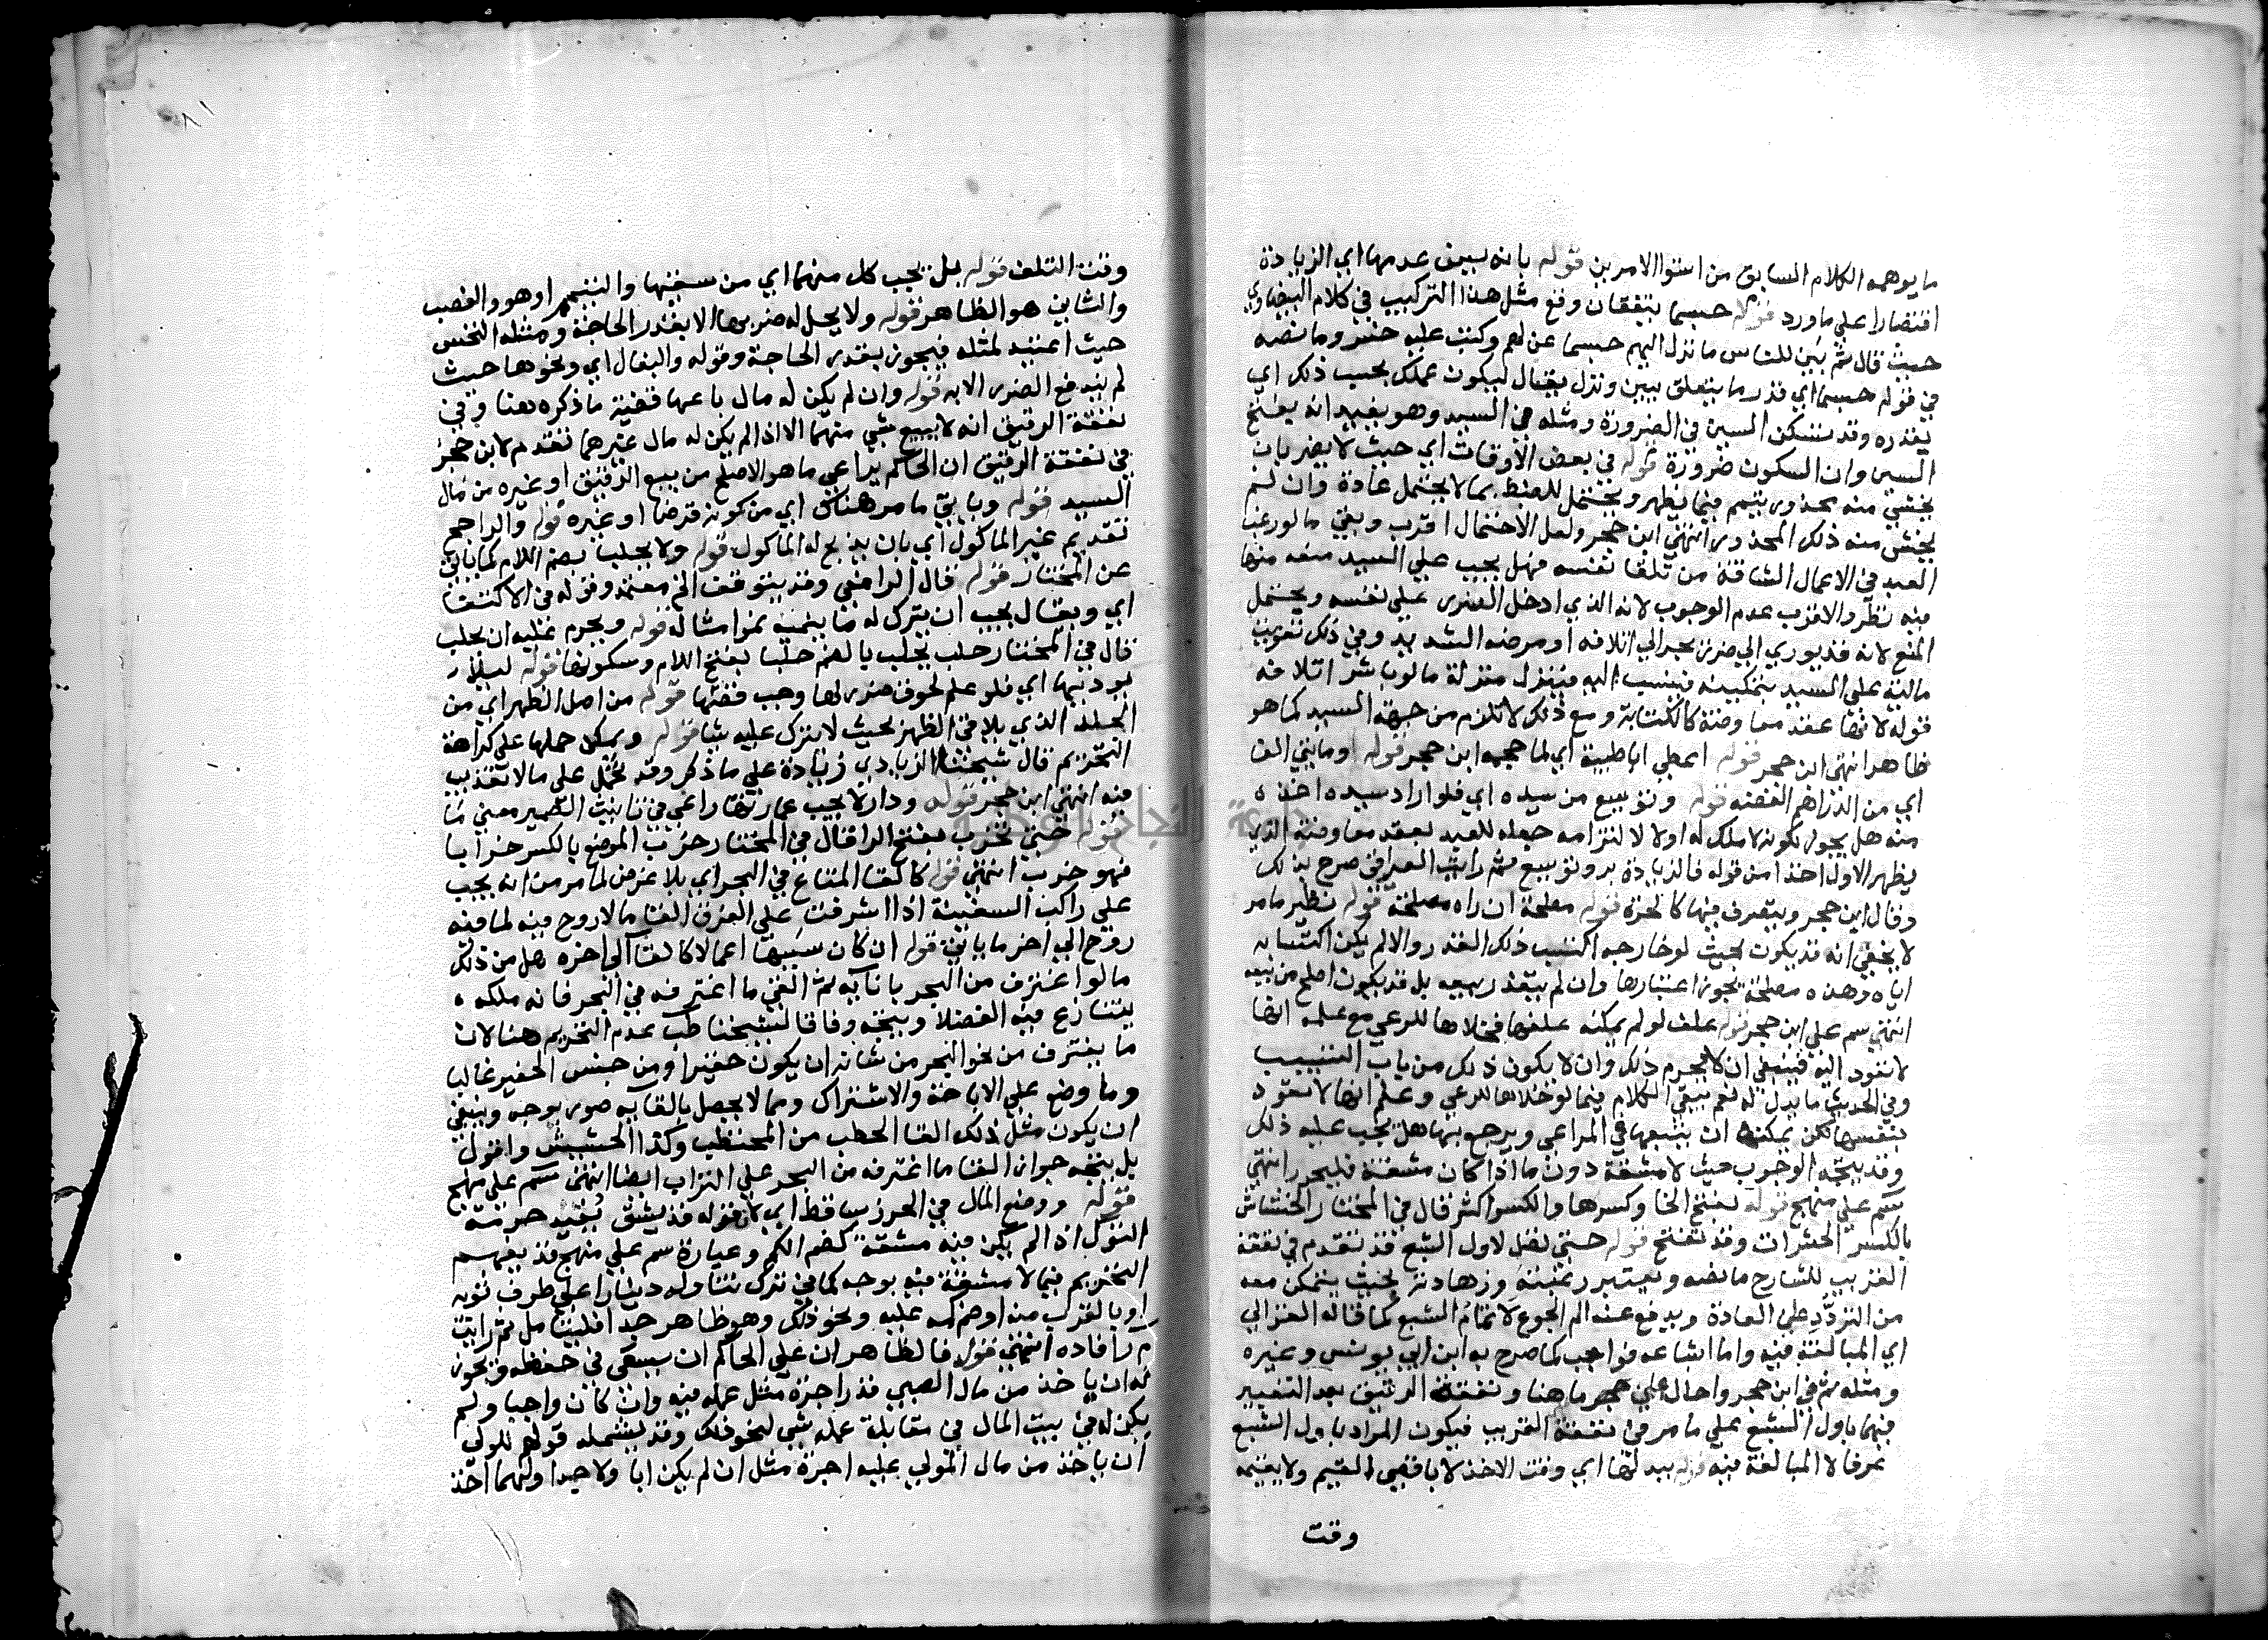 ما يوهمه الكلام السابق من استوا الامرين قوله بانه يبين عدمها اي الزيادة
اقتصارا علي ما ورد قوله حسبما يتفقان وقع مثل هذا التركيب في كلام البيضاوي
حيث قال ثم بين للناس ما نزل اليهم حسبما عن لهم وكتب عليه خسرو ما نصه
في قوله حسبما اي قدر ما يتعلق ببين ونزل يقال ليكون عملك بحسب ذلك اي
بقدره وقد تسكن السين في الضرورة ومثله في السيد وهو يفيد انه بفتح
السين وان السكون ضرورة قوله في بعض الاوقات اي حيث لا يضر بان
يخشي منه محذور تيمم فيما يظهر ويحتمل للضبط بما لا يحتمل عادة وان لم
يخش منه ذلك المحذور انتهي ابن حجر ولعل الاحتمال اقرب وبقي ما لو رغب
العبد في الاعمال الشاقة من تلقا نفسه فهل يجب علي السيد منعه منها
فيه نظر والاقرب عدم الوجوب لانه الذي ادخل الضرر علي نفسه ويحتمل
المنع لانه قد يودي الي ضرر يجر الي اتلافه او مرضه الشديد وفي ذلك تفويت
مالية علي السيد بتمكينه فينسب اليه فينزل منزلة ما لو باشر اتلافه
قوله لانها عقد معاوضة كالكتابة ومع ذلك لا تلزم من جهة السيد كما هو
ظاهر انتهي ابن حجر قوله اعطي ابا طيبة اي لما حجمه ابن حجر قوله او مايتي الف
اي من الدراهم الفضة قوله ونو بيع من سيده اي فلو اراد سيده اخذه
منه هل يجوز لكونه لا ملك له او لا لالتزامه جعله للعبد بعقد معاوضة الذي
يظهر الاول اخذا من قوله فالزيادة بر وتوسيع ثم رايت العراقي صرح بذلك
وقال ابن حجر ويتصرف فيها كالحرة قوله مصلحة ان راه مصلحة قوله نظير ما مر
لا يخفي انه قد يكون بحيث لو خارجه اكتسب ذلك القدر والا لم يكن اكتسابه
اياه وهذه مصلحة يجوز اعتبارها وان لم يتعذر بيعه بل قد يكون اصلح من بيعه
انتهي سم علي ابن حجر قوله علف لو لم يمكنه علفها فخلاها للرعي مع علمه انها
لا تعود اليه فينبغي ان لا يحرم ذلك وان لا يكون ذلك من باب التسييب
وفي الحديث ما يدل له نعم يبقي الكلام فيما لو خلاها للرعي وعلم انها لا تعود
بنفسها لكن يمكنه ان يتبعها في المراعي ويرجع بها هل يجب عليه ذلك
وقد يتجه الوجوب حيث لا مشقة دون ما اذا كان مشقة فليحرر انتهي
سم علي منهج قوله بفتح الخا وكسرها والكسر اكثر قال في المختار الخشاش
بالكسر الحشرات وقد تفتح قوله حتي تصل لاول الشبع قد تقدم في نفقة
القريب للشارح ما نصه ويعتبر رغبته وزهادته بحيث يتمكن معه
من التردد علي العادة ويدفع عنه الم الجوع لا تمام الشبع كما قاله الغزالي
اي المبالغة فيه واما اشباعه فواجب كما صرح به ابن ابي يونس وغيره
ومثله ثم في ابن حجر واحال علي حجر ما هنا ونفقة الرقيق بعد التعبير
فيها باول الشبع علي ما مر في نفقة القريب فيكون المراد باول الشبع
عرفا لا المبالغة فيه قوله ببدلها اي وقت الاخذ لا باقصي القيم ولا بقيمة
وقت
وقت التلف قوله بل يجب كل منهما اي من سقيها والتيمم او هو والغصب
والثاني هو الظاهر قوله ولا يحل له ضربها الا بقدر الحاجة ومثله النخس
حيث اعتيد لمثله فيجوز بقدر الحاجة وقوله والبغال اي ونحوها حيث
لم يندفع الضرر الا به قوله وان لم يكن له مال باعها قضية ما ذكره هنا وفي
نفقة الرقيق انه لا يبيع شي منهما الا اذا لم يكن له مال غيرهما تقدم لابن حجر
في نفقة الرقيق ان الحاكم يراعي ما هو الاصلح من بيع الرقيق او غيره من مال
السيد قوله وياتي ما مر هناك اي من كونه قرضا او غيره قوله والراجح
تقديم غير الماكول اي بان يذبح له الماكول قوله ولا يحلب بضم اللام كما ياتي
عن المختار قوله قال الرافعي وقد يتوقف الخ معتمد وقوله في الاكتفا
اي ويقال يجب ان يترك له ما ينميه نموا مثاله قوله ويحرم عليه ان يحلب
قال في المختار حلب يحلب بالضم حلبا بفتح اللام وسكونها قوله ليلا
يوذيها اي فلو علم لحوق ضرر لها وجب قصها قوله من اصل الظهر اي من
الجلد الذي يلاقي الظهر بحيث لا يترك عليه شيا قوله ويمكن حملها علي كراهة
التحريم قال شيخنا الزيادي زيادة علي ما ذكر وقد يحمل علي ما لا تعذيب
فيه انتهي ابن حجر قوله ودار لا يجب عمارتها راعي في تانيث الضمير معني ما
قوله حتي تخرب بفتح الرا قال في المختار خرب الموضع بالكسر خرابا
فهو خرب انتهي قوله كالقا المتاع في البحر اي بلا غرض لما مر من انه يجب
علي راكب السفينة اذا اشرفت علي الغرق القا ما لا روح فيه لما فيه
روح الي اخر ما ياتي قوله ان كان سببها اعمالا كالقا الي اخره هل من ذلك
ما لو اغترف من البحر باناء ثم القي ما اغترفه في البحر فانه ملكه
يتنازع فيه الفضلا ويتجه وفاقا لشيخنا طب عدم التحريم هنا لان
ما يغترف من نحو البحر من شانه ان يكون حقيرا ومن جنس الحقير غالبا
وما وضع علي الاباحة والاشتراك ومما لا يحصل بالقايه ضرر بوجه وينبغي
ان يكون مثل ذلك القا الحطب من المحتطب وكذا الحشيش واقول
بل يتجه جواز القا ما اغترفه من البحر علي التراب ايضا انتهي سم علي منهج
قوله ووضع المال في الحرز ساقط اي لان قوله قد يشق يفيد حرمة
الترك اذا لم يكن فيه مشقة كضم الكم وعبارة سم علي منهج قد يفهم
التحريم فيما لا مشقة فيه بوجه كما في ترك تناوله دينارا علي طرف ثوبه
او بالقرب منه او ضم كمه عليه ونحو ذلك وهو ظاهر جدا فليتامل ثم رايت
م ر افاده انتهي قوله فالظاهر ان علي الحاكم ان يسعي في حفظه ويجوز
له ان ياخذ من مال الصبي قدر اجرة مثل عمله فيه وان كان واجبا ولم
يكن له في بيت المال في مقابلة عمله شي لنحو فلك وقد يشمله قولهم للولي
ان ياخذ من مال المولي عليه اجرة مثل ان لم يكن ابا ولا جدا ولهما اخذ